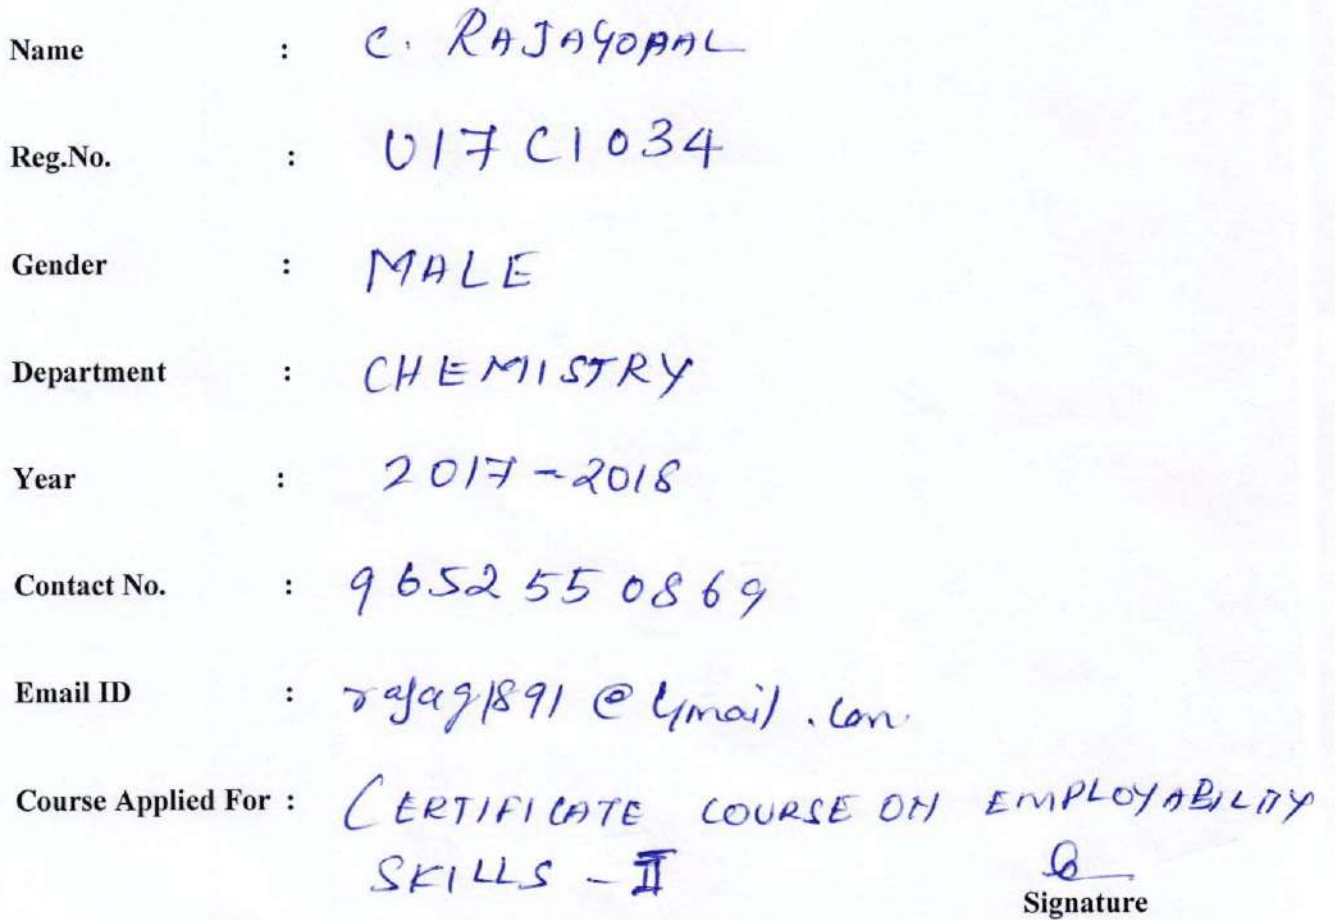 Name : C. RAJAGOPAL
Reg.No. : U17C1034
Gender : MALE
Department : CHEMISTRY
Year : 2017-2018
Contact No. : 9652550869
Email ID : rajag1891@gmail.com
Course Applied For : CERTIFICATE COURSE ON EMPLOYABILITY
SKILLS - II
Signature